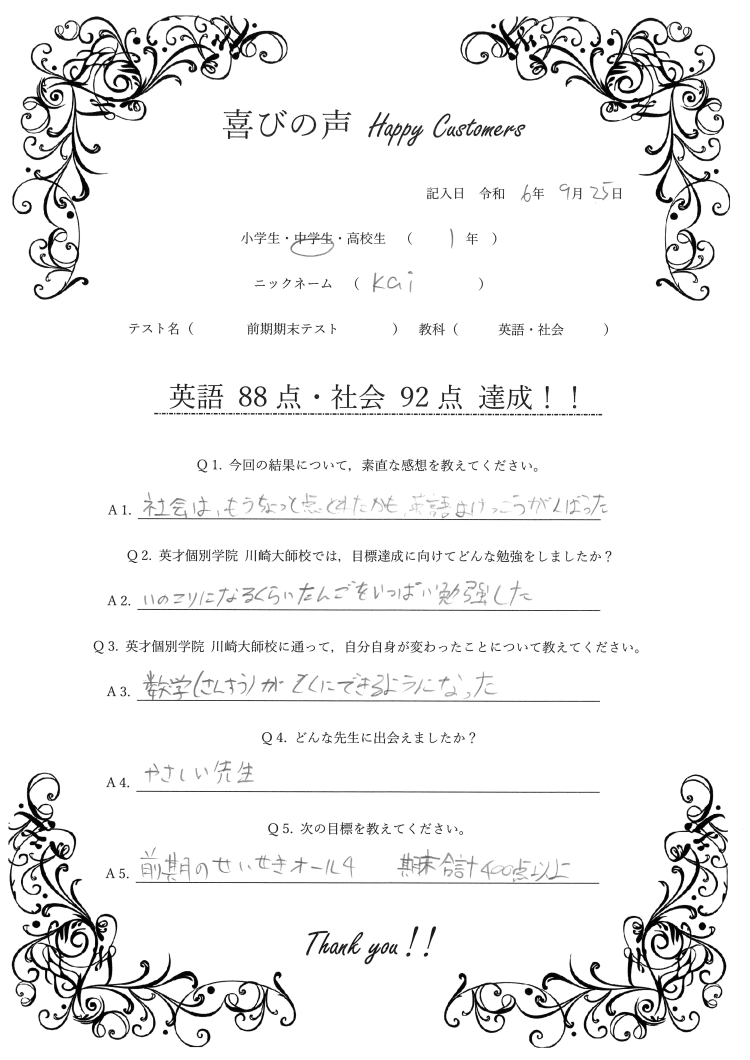 喜びの声 Happy Customers
記入日 令和 6年 9月 25日
小学生・中学生・高校生 ( 1 年 )
ニックネーム ( kai )
テスト名( 前期期末テスト ) 教科( 英語・社会 )
英語 88点・社会 92点 達成！！
Q1. 今回の結果について，素直な感想を教えてください。
A1. 社会は、もうちょっと点とれたかも、英語はけっこうがんばった
Q2. 英才個別学院 川崎大師校では，目標達成に向けてどんな勉強をしましたか？
A2. いのこりになるくらいたんごをいっぱい勉強した
Q3. 英才個別学院 川崎大師校に通って，自分自身が変わったことについて教えてください。
A3. 数学(さんすう)がとくにできるようになった
Q4. どんな先生に出会えましたか？
A4. やさしい先生
Q5. 次の目標を教えてください。
A5. 前期のせいせきオール4 期末合計400点以上
Thank you！！